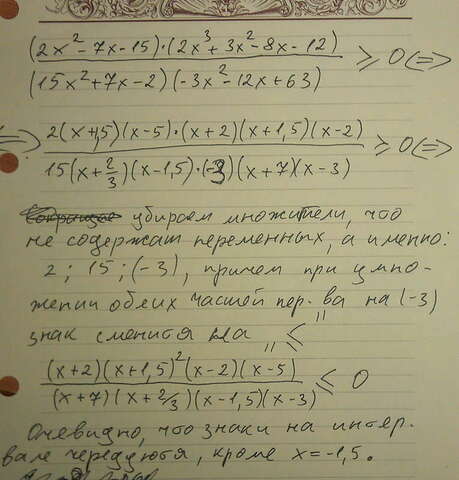 (2x² - 7x - 15)·(2x³ + 3x² - 8x - 12)
(15x² + 7x - 2)(-3x² - 12x + 63) ≥ 0 <=>
=> 2(x+1,5)(x-5)·(x+2)(x+1,5)(x-2)
15(x + 2/3)(x - 1,5)·(-3)(x+7)(x-3) ≥ 0 <=>
убираем множители, что
не содержат переменных, а именно:
2; 15; (-3), причем при умно-
жении обеих частей пер-ва на (-3)
знак сменится на „≤"
(x+2)(x+1,5)²(x-2)(x-5)
(x+7)(x+2/3)(x-1,5)(x-3) ≤ 0
Очевидно, что знаки на интер-
вале чередуются, кроме x = -1,5.